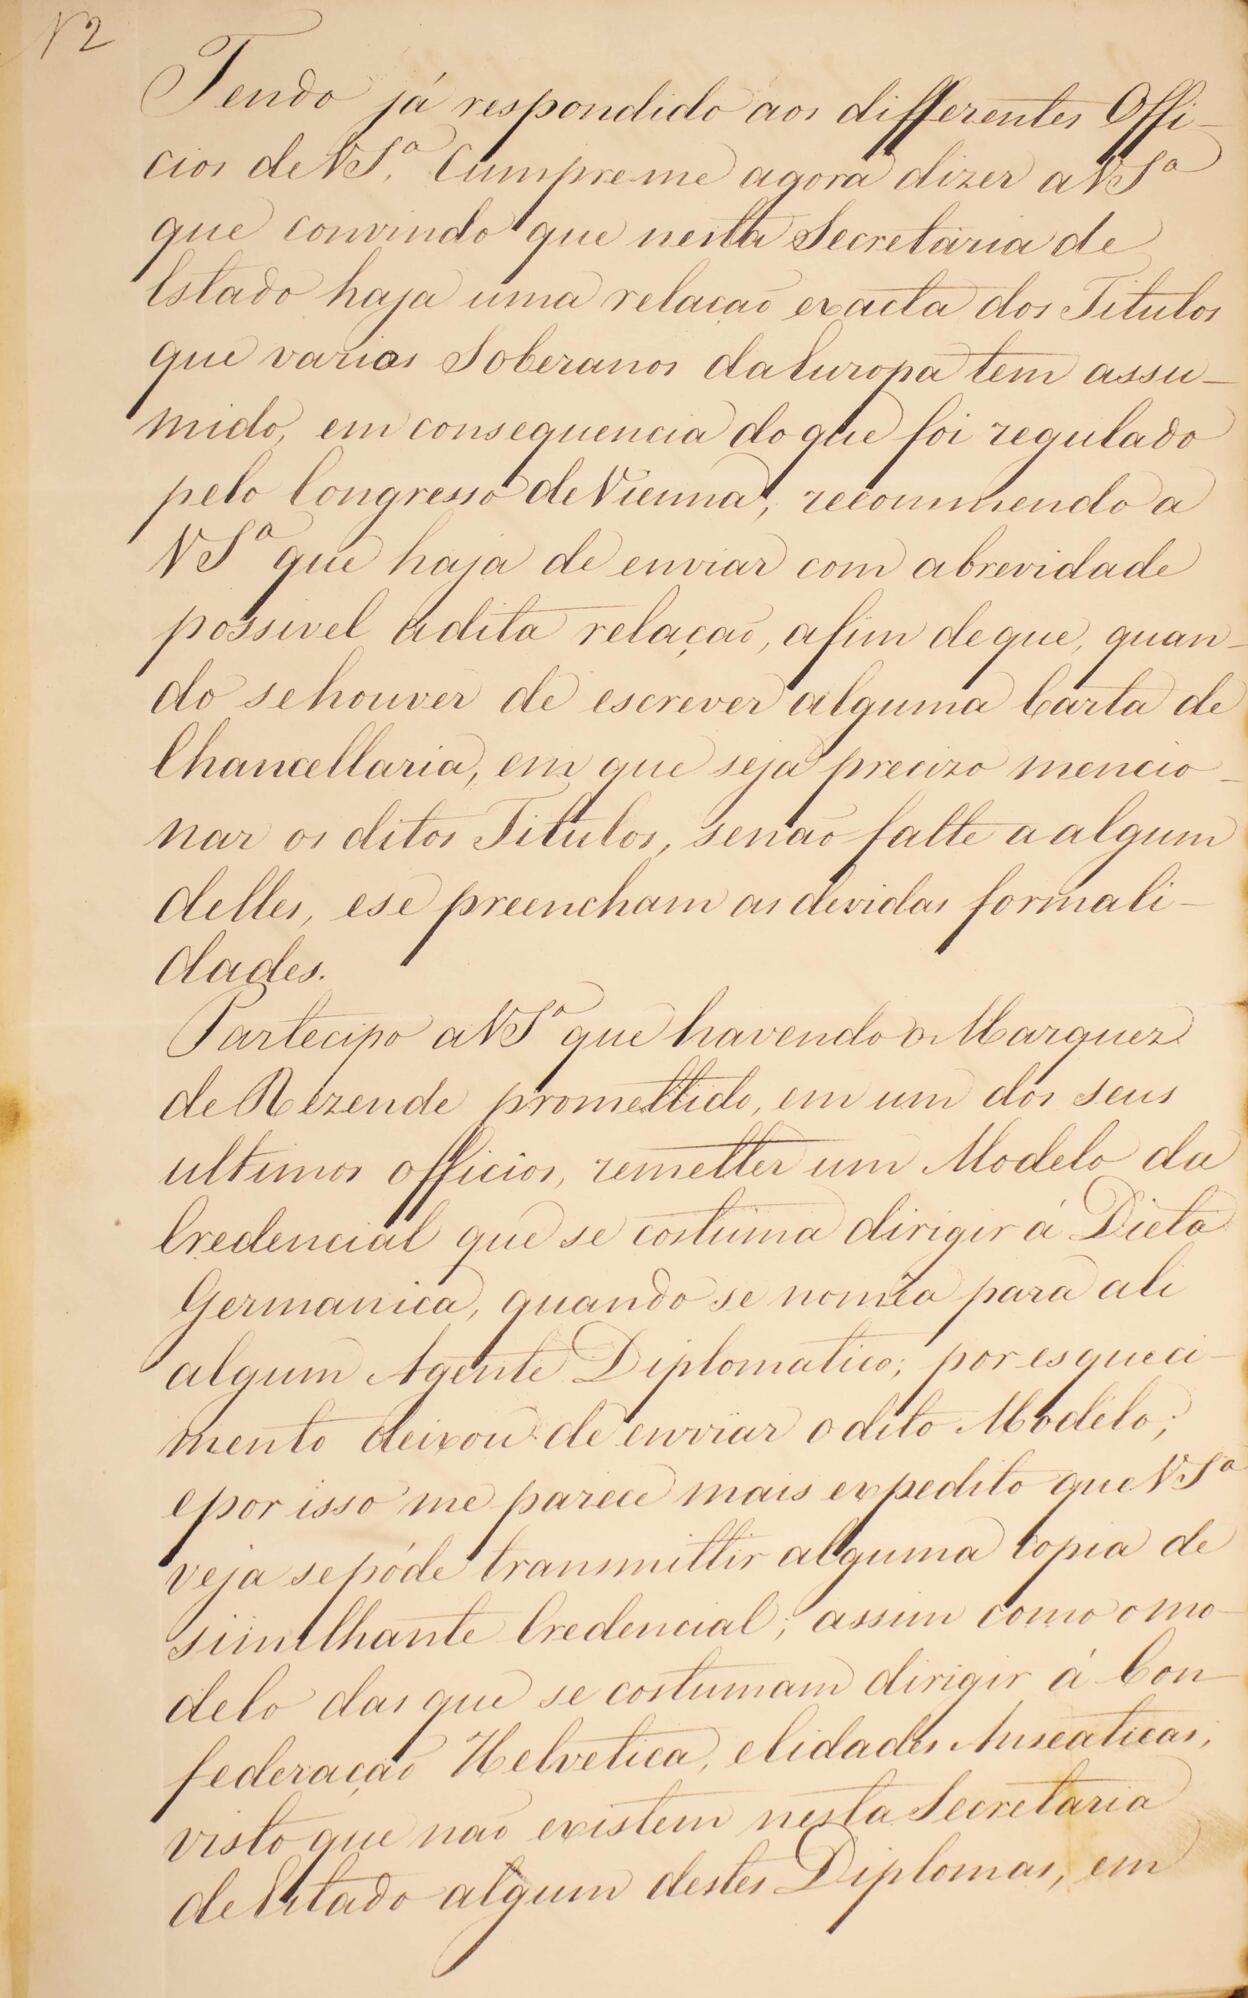 N2
Tendo já respondido aos differentes Offi-
cios de VS.ª Cumpre me agora dizer a VSª
que convindo que nesta Secretaria de
Estado haja uma relação exacta dos Titulos
que varios Soberanos da Europa tem assu-
mido, em consequencia do que foi regulado
pelo Congresso de Vienna, recommendo a
VSª que haja de enviar com abrevidade
possivel adita relação, afim de que, quan-
do sehouver de escrever alguma Carta de
Chancellaria, em que seja precizo mencio-
nar os ditos Titulos, senão falte a algum
delles, ese preencham as devidas formali-
dades.
Partecipo a VSª que havendo o Marquez
de Rezende promettido, em um dos seus
ultimos officios, remetter um Modelo da
Credencial que se costuma dirigir á Dieta
Germanica, quando se nomêa para ali
algum Agente Diplomatico; por esqueci-
mento deixou de enviar o dito Modélo;
epor isso me parece mais expedito que VSª
veja sepóde transmittir alguma copia de
similhante Credencial; assim como o mo-
delo das que se costumam dirigir á Con-
federação Helvetica, eCidades Anseaticas,
visto que não existem nesta Secretaria
de Estado algum destes Diplomas, em